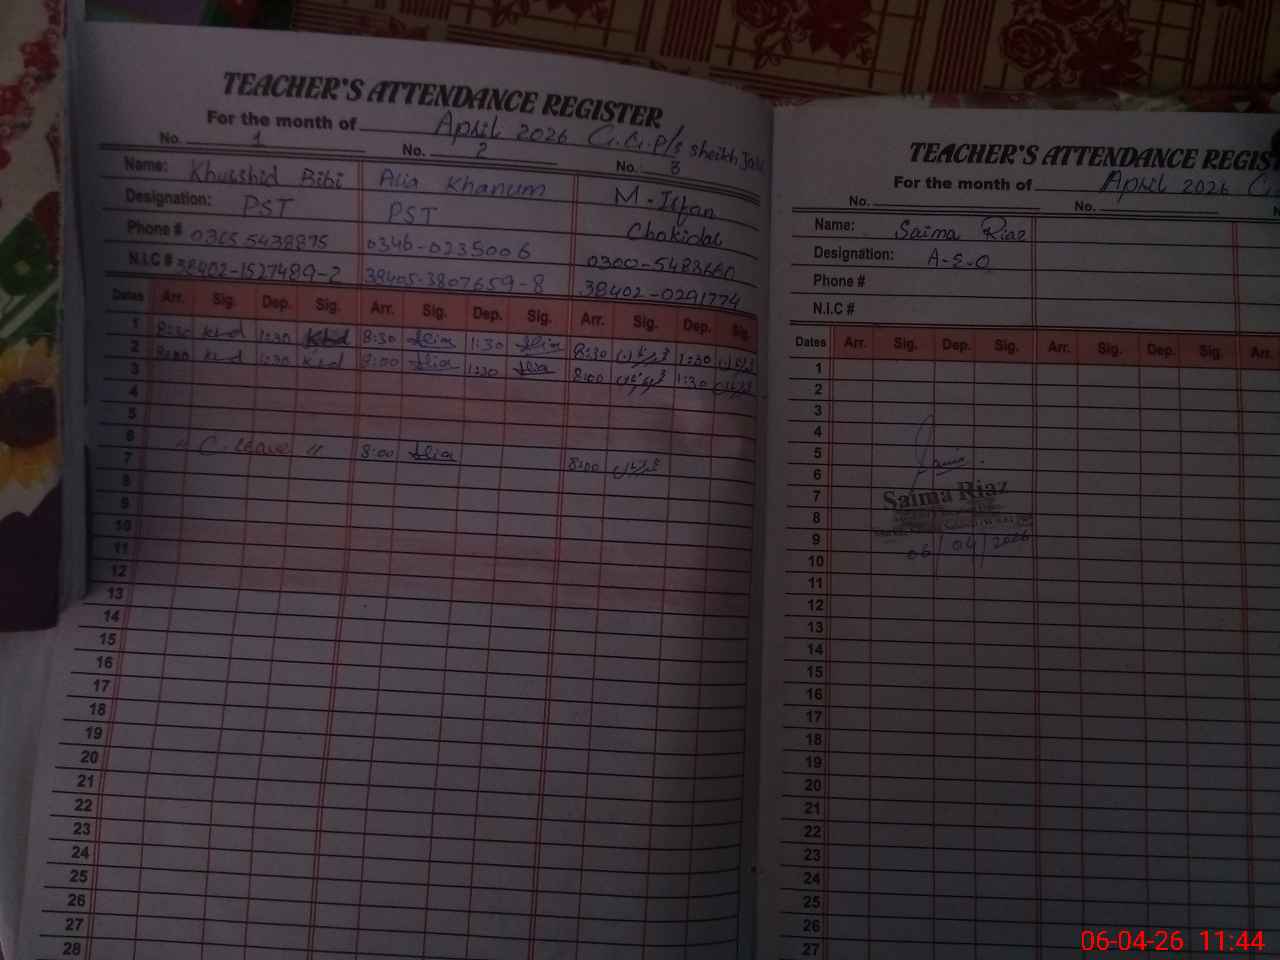 TEACHER'S ATTENDANCE REGISTER
For the month of April 2026 G.G.P/S Sheikh
No. 1 No. 2 No. 3
Name: Khurshid Bibi Alia Khanum M-Irfan
Designation: PST PST Chokidar
Phone # 0346-0235006 0300-5483660
N.I.C # 38402-1527489-2 38405-3807659-8 38402-0291774
Dates Arr. Sig. Dep. Sig. Arr. Sig. Dep. Sig. Arr. Sig. Dep. Sig.
1 8:30 khd 1:30 khd 8:30 Alia 1:30 Alia 8:30 1:30
2 8:00 khd 1:30 khd 8:00 Alia 1:30 Alia 8:00 1:30
3
4
5
6 " C. Leave " 8:00 Alia 8:00
7
8
9
10
11
12
13
14
15
16
17
18
19
20
21
22
23
24
25
26
27
28
TEACHER'S ATTENDANCE REGIST
For the month of April 2026 G.
No. No.
Name: Saima Riaz
Designation: A-E-O
Phone #
N.I.C #
Dates Arr. Sig. Dep. Sig. Arr. Sig. Dep. Sig. Arr.
1
2
3
4
5
6
7
8
9
10
11
12
13
14
15
16
17
18
19
20
21
22
23
24
25
26
27
Saima Riaz
06/04/2026
06-04-26 11:44